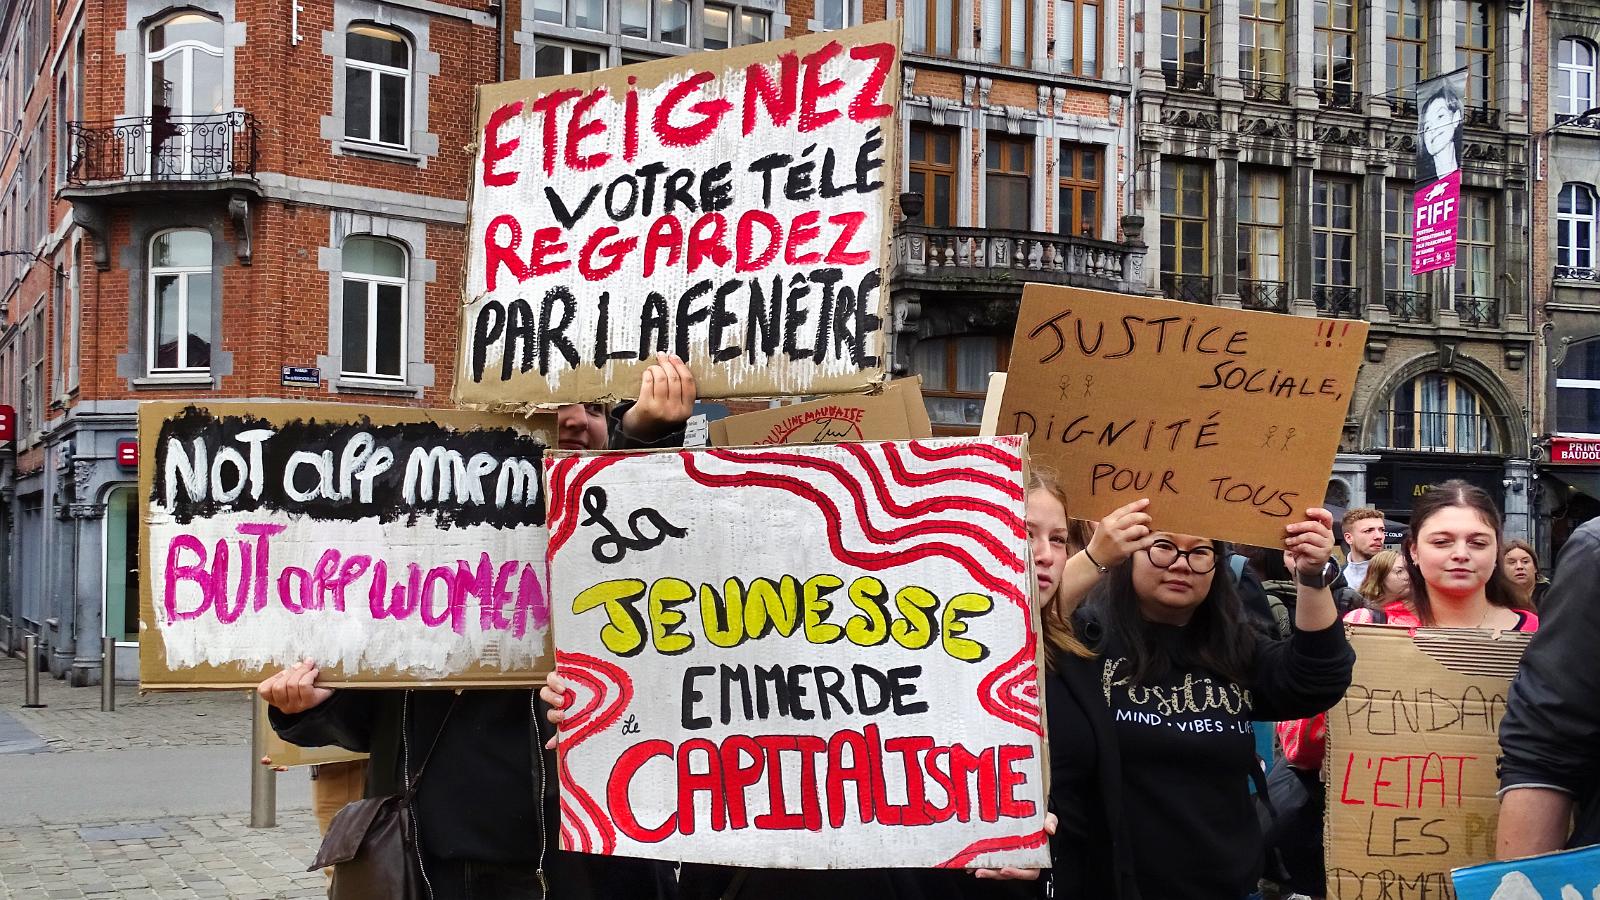 ETEIGNEZ
VOTRE TÉLÉ
REGARDEZ
PAR LA FENÊTRE
NOT all men
BUT all WOMEN
La
JEUNESSE
EMMERDE
Le
CAPITALISME
JUSTICE !!!
SOCIALE,
DIGNITÉ
POUR TOUS
POUR UNE MAUVAISE
FIFF
FESTIVAL
INTERNATIONAL DU
FILM FRANCOPHONE
DE NAMUR
Positive
MIND • VIBES • LIF
PRINC
BAUDOU
PENDAN
L'ETAT
LES
DORMEN